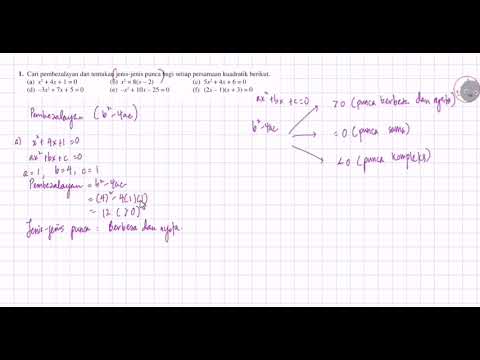 1. Cari pembezalayan dan tentukan jenis-jenis punca bagi setiap persamaan kuadratik berikut.
(a) x² + 4x + 1 = 0 (b) x² = 8(x – 2) (c) 5x² + 4x + 6 = 0
(d) –3x² + 7x + 5 = 0 (e) –x² + 10x – 25 = 0 (f) (2x – 1)(x + 3) = 0
Pembezalayan (b² – 4ac)
a) x² + 4x + 1 = 0
ax² + bx + c = 0
a = 1, b = 4, c = 1
Pembezalayan = b² – 4ac
= (4)² – 4(1)(1)
= 12 (>0)
Jenis-jenis punca : Berbeza dan nyata.
ax² + bx + c = 0
b² – 4ac
>0 (punca berbeza dan nyata)
= 0 (punca sama)
<0 (punca kompleks)